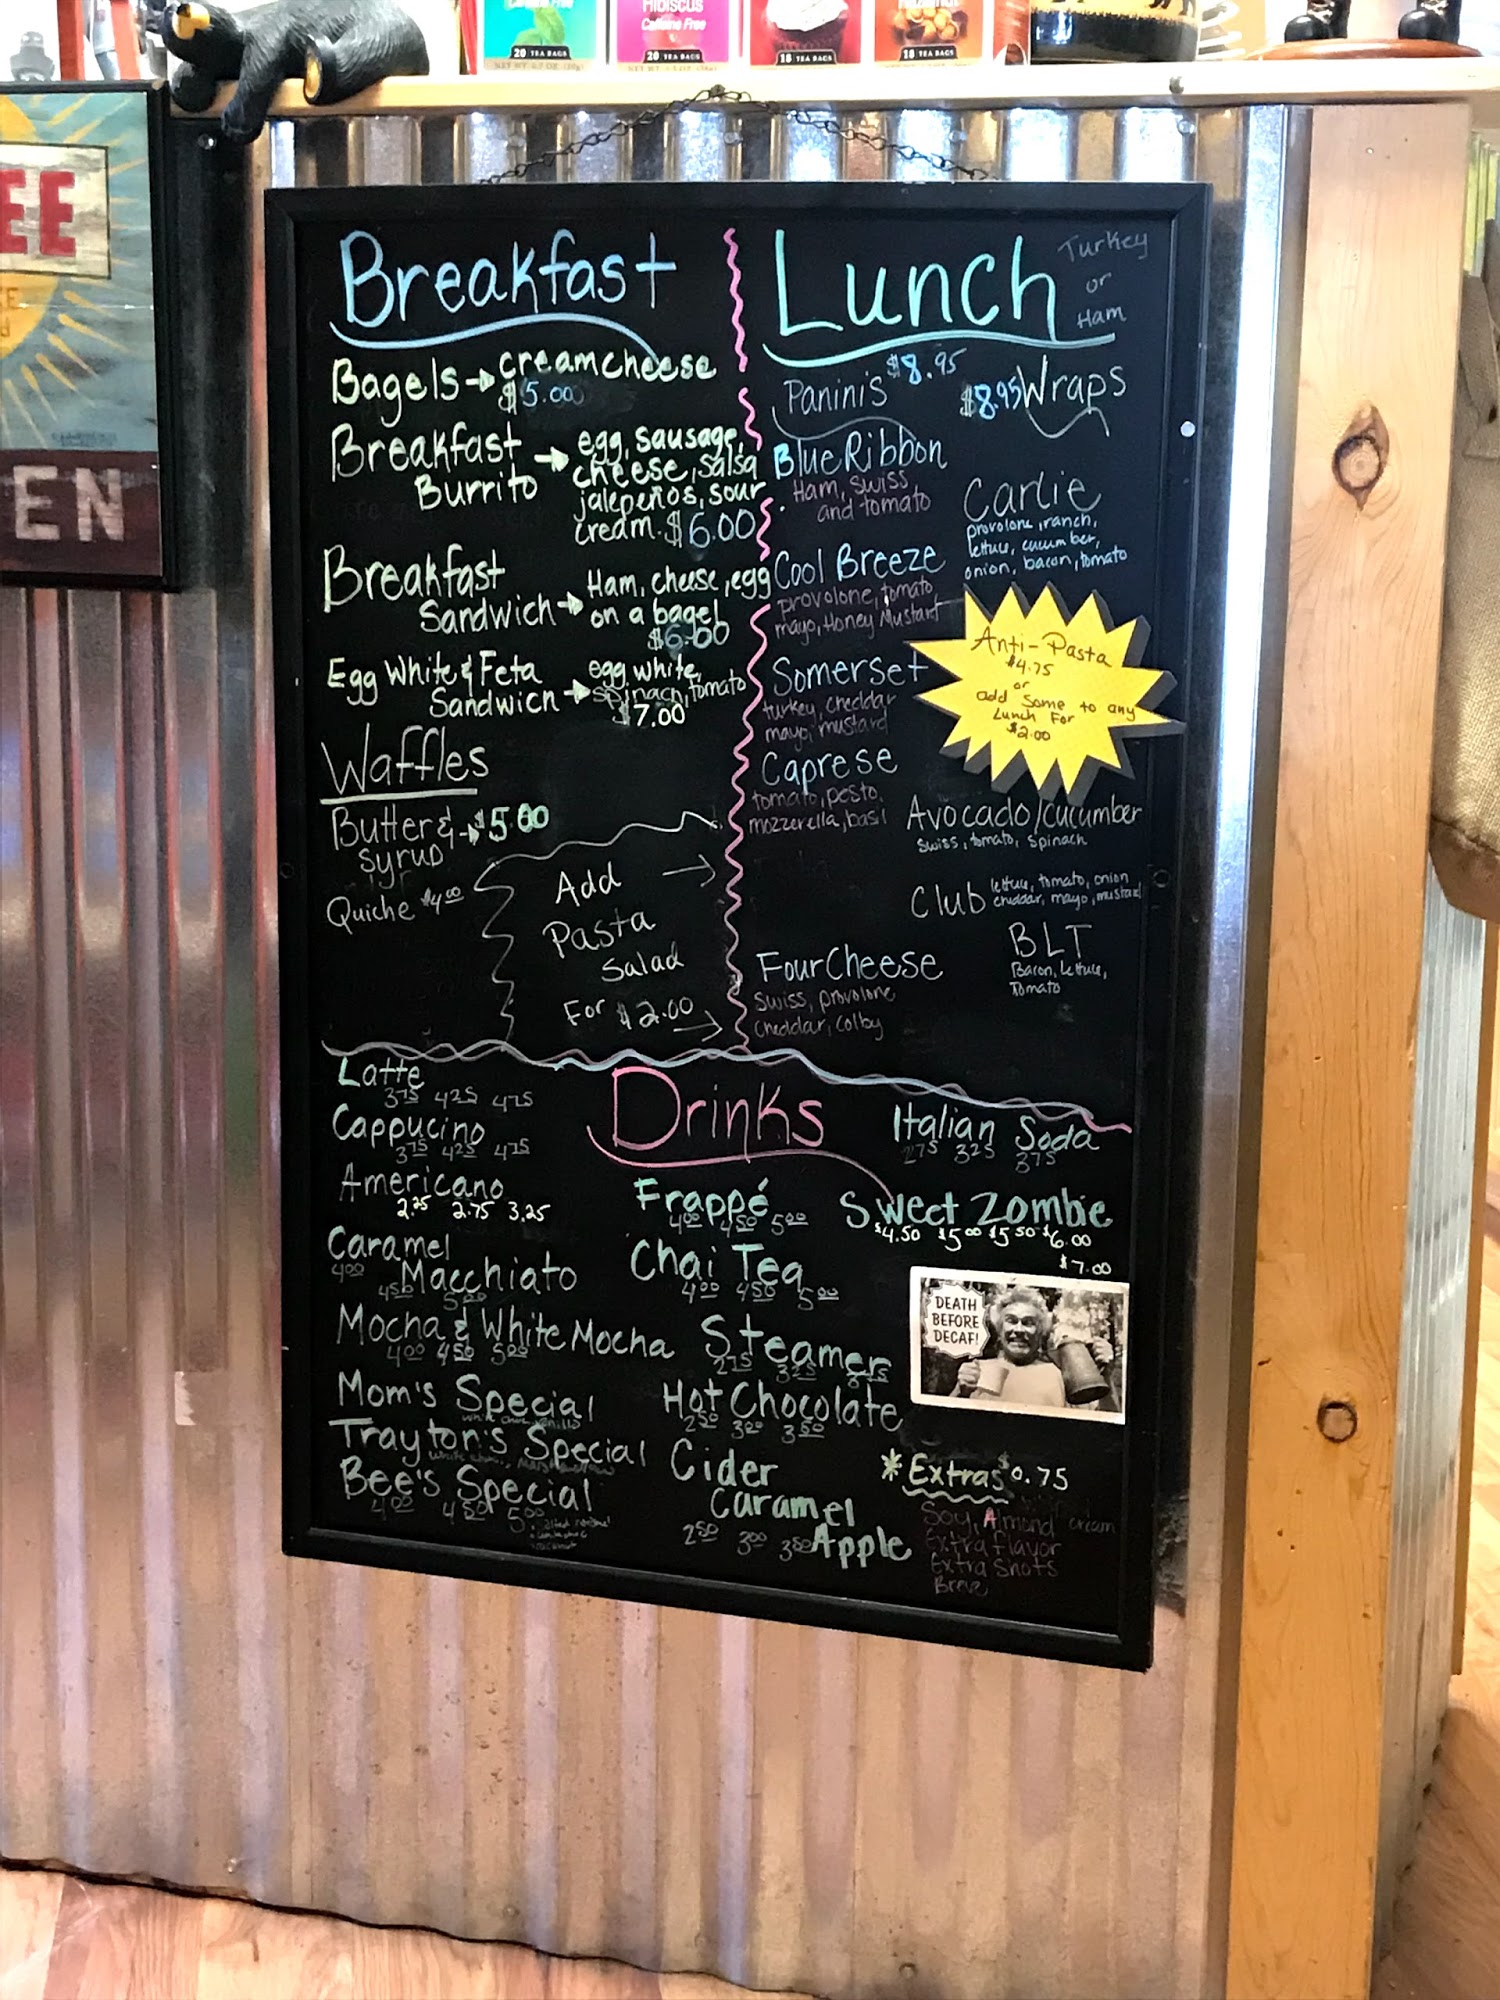 Caffeine Free
20 TEA BAGS
HIBISCUS
Caffeine Free
20 TEA BAGS
18 TEA BAGS
18 TEA BAGS
EE
EN
Breakfast
Bagels → creamcheese
$5.00
Breakfast
Burrito → egg, sausage,
cheese, salsa
jalepeños, sour
cream. $6.00
Breakfast
Sandwich → Ham, cheese, egg
on a bagel
$6.00
Egg White & Feta
Sandwich → egg white,
spinach, tomato
$7.00
Waffles
Butter & → $5.00
syrup
Quiche $4.00
Add
Pasta
Salad
For $2.00
Lunch
Turkey
or
Ham
Paninis $8.95
Blue Ribbon
Ham, swiss
and tomato
Cool Breeze
provolone, tomato,
mayo, Honey Mustard
Somerset
turkey, cheddar
mayo, mustard
Caprese
tomato, pesto,
mozzerella, basil
Four Cheese
Swiss, provolone
cheddar, colby
$8.95 Wraps
Carlie
provolone, ranch,
lettuce, cucumber,
onion, bacon, tomato
Anti-Pasta
$4.75
or
add some to any
Lunch For
$2.00
Avocado/cucumber
Swiss, tomato, spinach
Club lettuce, tomato, onion
cheddar, mayo, mustard
BLT
Bacon, Lettuce,
Tomato
Drinks
Latte
3.75 4.25 4.75
Cappucino
3.75 4.25 4.75
Americano
2.25 2.75 3.25
Caramel
Macchiato
4.00 4.50 5.00
Mocha & White Mocha
4.00 4.50 5.00
Mom's Special
Trayton's Special
Bee's Special
4.00 4.50 5.00
Frappé
4.00 4.50 5.00
Chai Tea
4.00 4.50 5.00
Steamers
2.75 3.25 3.75
Hot Chocolate
2.50 3.00 3.50
Cider
Caramel
Apple
2.50 3.00 3.50
Italian Soda
2.75 3.25 3.75
Sweet Zombie
$4.50 $5.00 $5.50 $6.00
$7.00
DEATH
BEFORE
DECAF!
*Extras $0.75
Soy, Almond cream
Extra flavor
Extra Shots
Breve